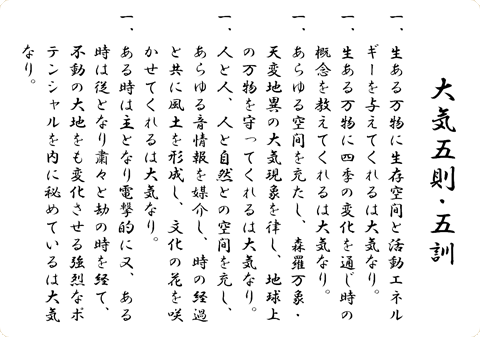 大気五則・五訓
一、生ある万物に生存空間と活動エネル
ギーを与えてくれるは大気なり。
一、生ある万物に四季の変化を通じ時の
概念を教えてくれるは大気なり。
一、あらゆる空間を充たし、森羅万象・
天変地異の大気現象を律し、地球上
の万物を守ってくれるは大気なり。
一、人と人、人と自然との空間を充し、
あらゆる音情報を媒介し、時の経過
と共に風土を形成し、文化の花を咲
かせてくれるは大気なり。
一、ある時は主となり電撃的に又、ある
時は従となり粛々と劫の時を経て、
不動の大地をも変化させる強烈なポ
テンシャルを内に秘めているは大気
なり。